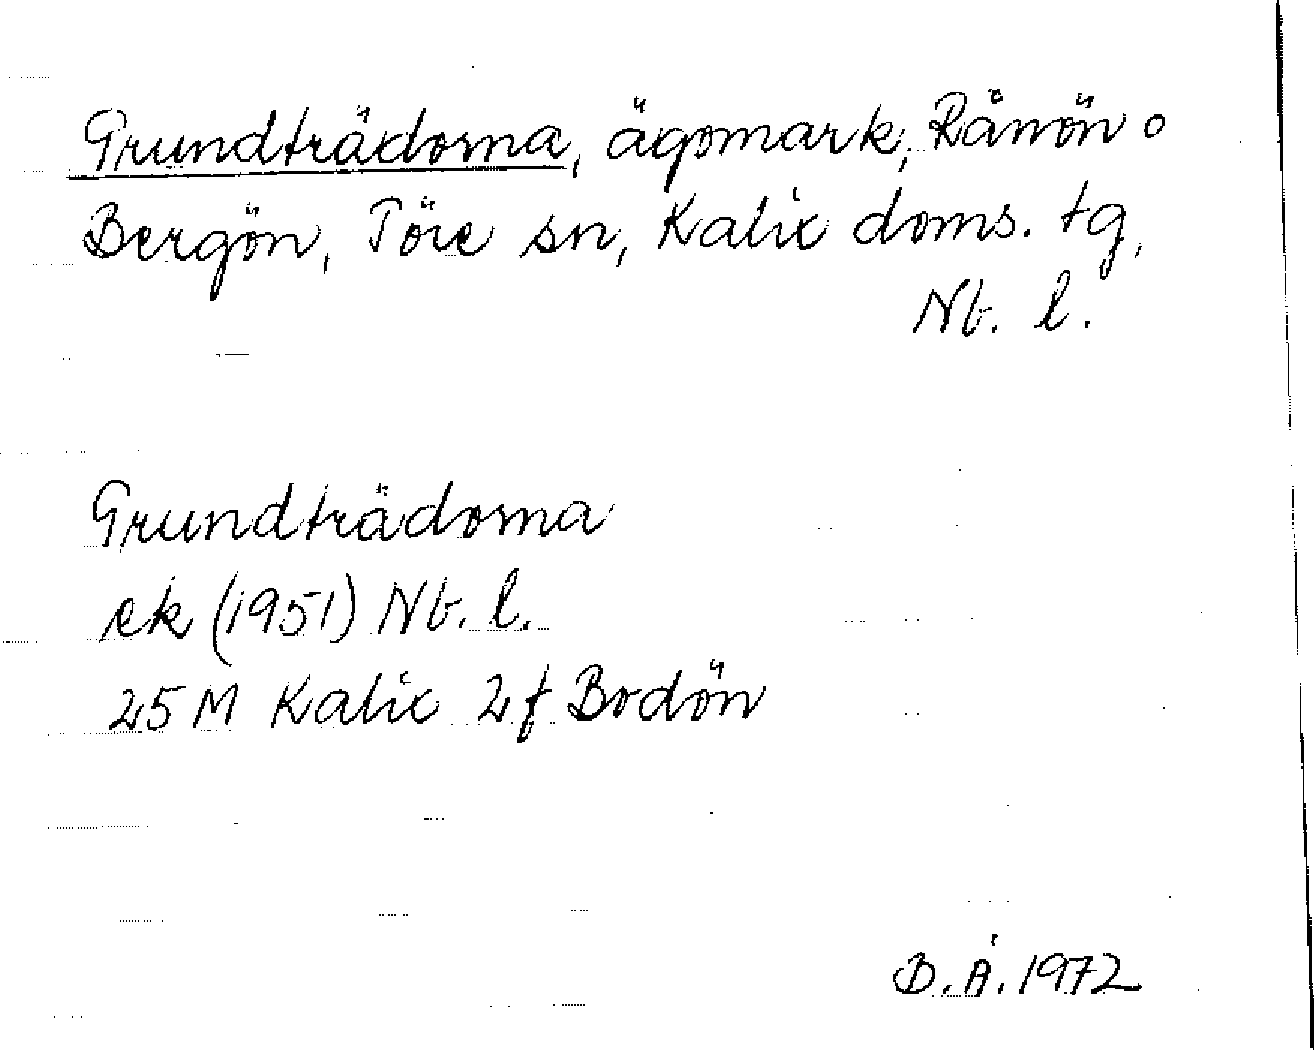 Grundträdorna, ägomark, Rånön o
Bergön, Töre sn, Kalix doms. tg,
Nb. l.
Grundträdorna
ek (1951) Nb. l.
25 M Kalix 2f Bodön
B.Å. 1972